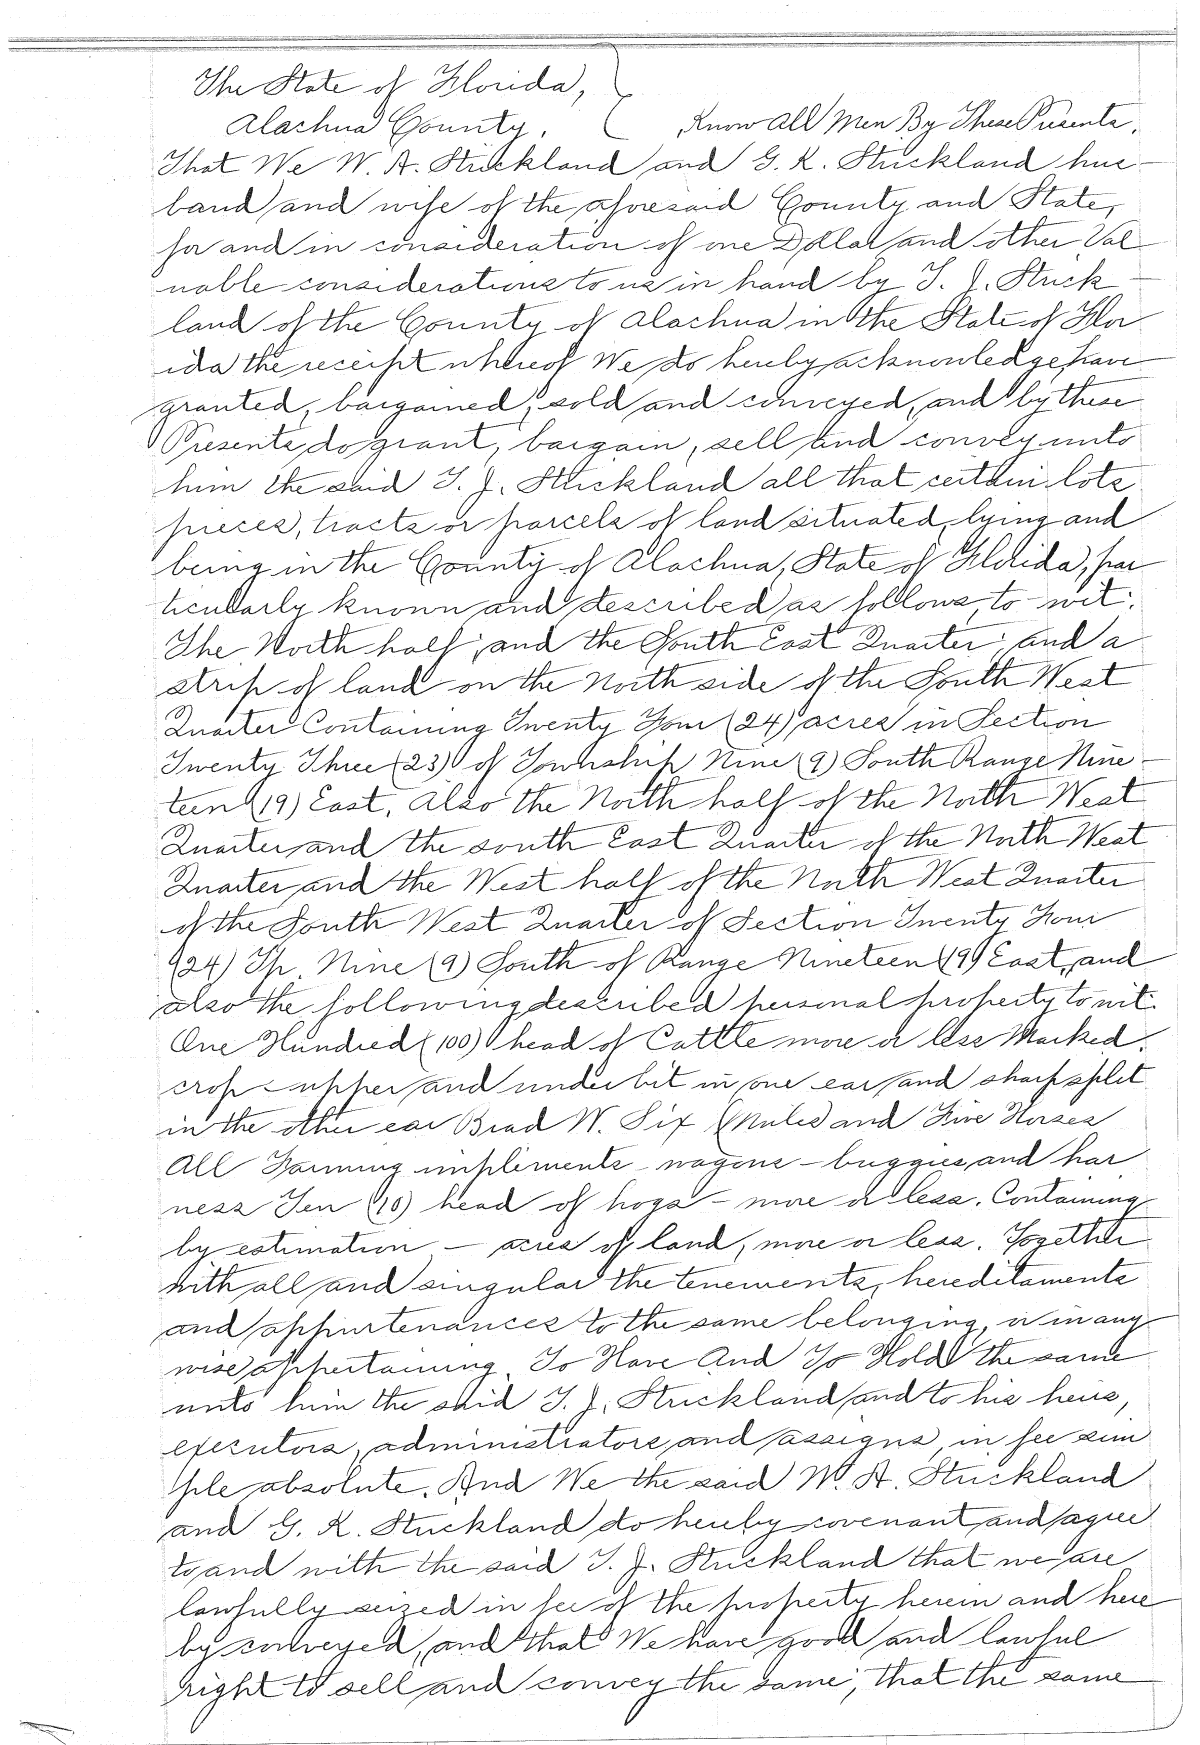 The State of Florida,
Alachua County. Know All Men By These Presents,
That We W. A. Strickland and G. K. Strickland hus-
band and wife of the aforesaid County and State,
for and in consideration of one Dollar and other Val
uable considerations to us in hand by T. J. Strick-
land of the County of Alachua in the State of Flor
ida the receipt whereof We do hereby acknowledge, have
granted, bargained, sold and conveyed, and by these
Presents do grant, bargain, sell and convey unto
him the said T. J. Strickland all that certain lots
pieces, tracts or parcels of land situated, lying and
being in the County of Alachua, State of Florida, par
ticularly known and described as follows, to-wit:
The North half; and the South East Quarter; and a
strip of land on the North side of the South West
Quarter Containing Twenty Four (24) acres in Section
Twenty Three (23) of Township Nine (9) South Range Nine-
teen (19) East. Also the North half of the North West
Quarter, and the south East Quarter of the North West
Quarter, and the West half of the North West Quarter
of the South West Quarter of Section Twenty Four
(24) Tp. Nine (9) South of Range Nineteen (19) East, and
also the following described personal property to wit.
One Hundred (100) head of Cattle more or less Marked.
crop-upper and under bit in one ear, and sharp split
in the other ear Brad W. Six Mules and Five Horses
All Farming impliments - wagons - buggies, and har
ness Ten (10) head of hogs - more or less. Containing
by estimation — acres of land, more or less. Together
with all and singular the tenements, hereditaments
and appurtenances to the same belonging, or in any
wise appertaining. To Have And To Hold the same
unto him the said T. J. Strickland and to his heirs,
executors, administrators, and assigns, in fee sim
ple absolute. And We the said W. A. Strickland
and G. K. Strickland do hereby covenant and agree
to and with the said T. J. Strickland that we are
lawfully seized in fee of the property herein and here
by conveyed, and that We have good and lawful
right to sell and convey the same; that the same